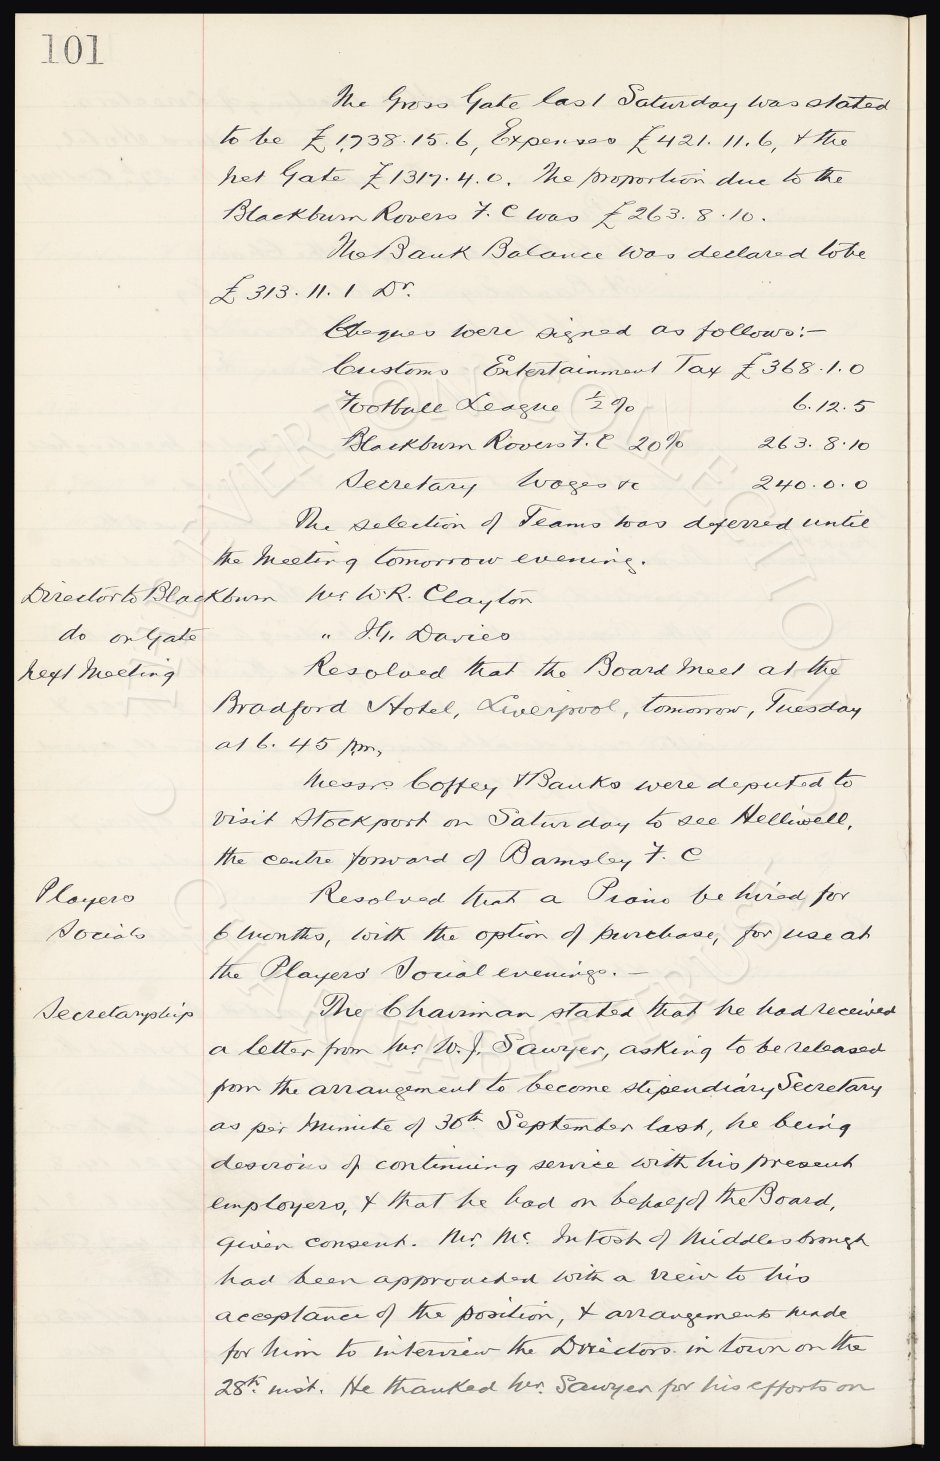 101
The Gross Gate last Saturday was stated
to be £1738.15.6, Expenses £421.11.6, & the
net Gate £1317.4.0. The proportion due to the
Blackburn Rovers F. C was £263.8.10.
The Bank Balance was declared to be
£313.11.1 Dr.
Cheques were signed as follows:-
Customs Entertainment Tax £368.1.0
Football League ½% 6.12.5
Blackburn Rovers F. C 20% 263.8.10
Secretary Wages &c 240.0.0
The selection of Teams was deferred until
the Meeting tomorrow evening.
Director to Blackburn Mr W.R. Clayton
do on Gate " J.G. Davies
Next Meeting Resolved that the Board Meet at the
Bradford Hotel, Liverpool, tomorrow, Tuesday
at 6.45 pm,
Messrs Coffey & Banks were deputed to
visit Stockport on Saturday to see Helliwell,
the centre forward of Barnsley F. C
Players Resolved that a Piano be hired for
Socials 6 months, with the option of purchase, for use at
the Players' Social evenings. -
Secretaryship The Chairman stated that he had received
a letter from Mr. W. J. Sawyer, asking to be released
from the arrangement to become stipendiary Secretary
as per Minute of 30th September last, he being
desirous of continuing service with his present
employers, & that he had on behalf of the Board,
given consent. Mr. Mc. Intosh of Middlesbrough
had been approached with a view to his
acceptance of the position, & arrangements made
for him to interview the Directors in town on the
28th inst. He thanked Mr. Sawyer for his efforts on